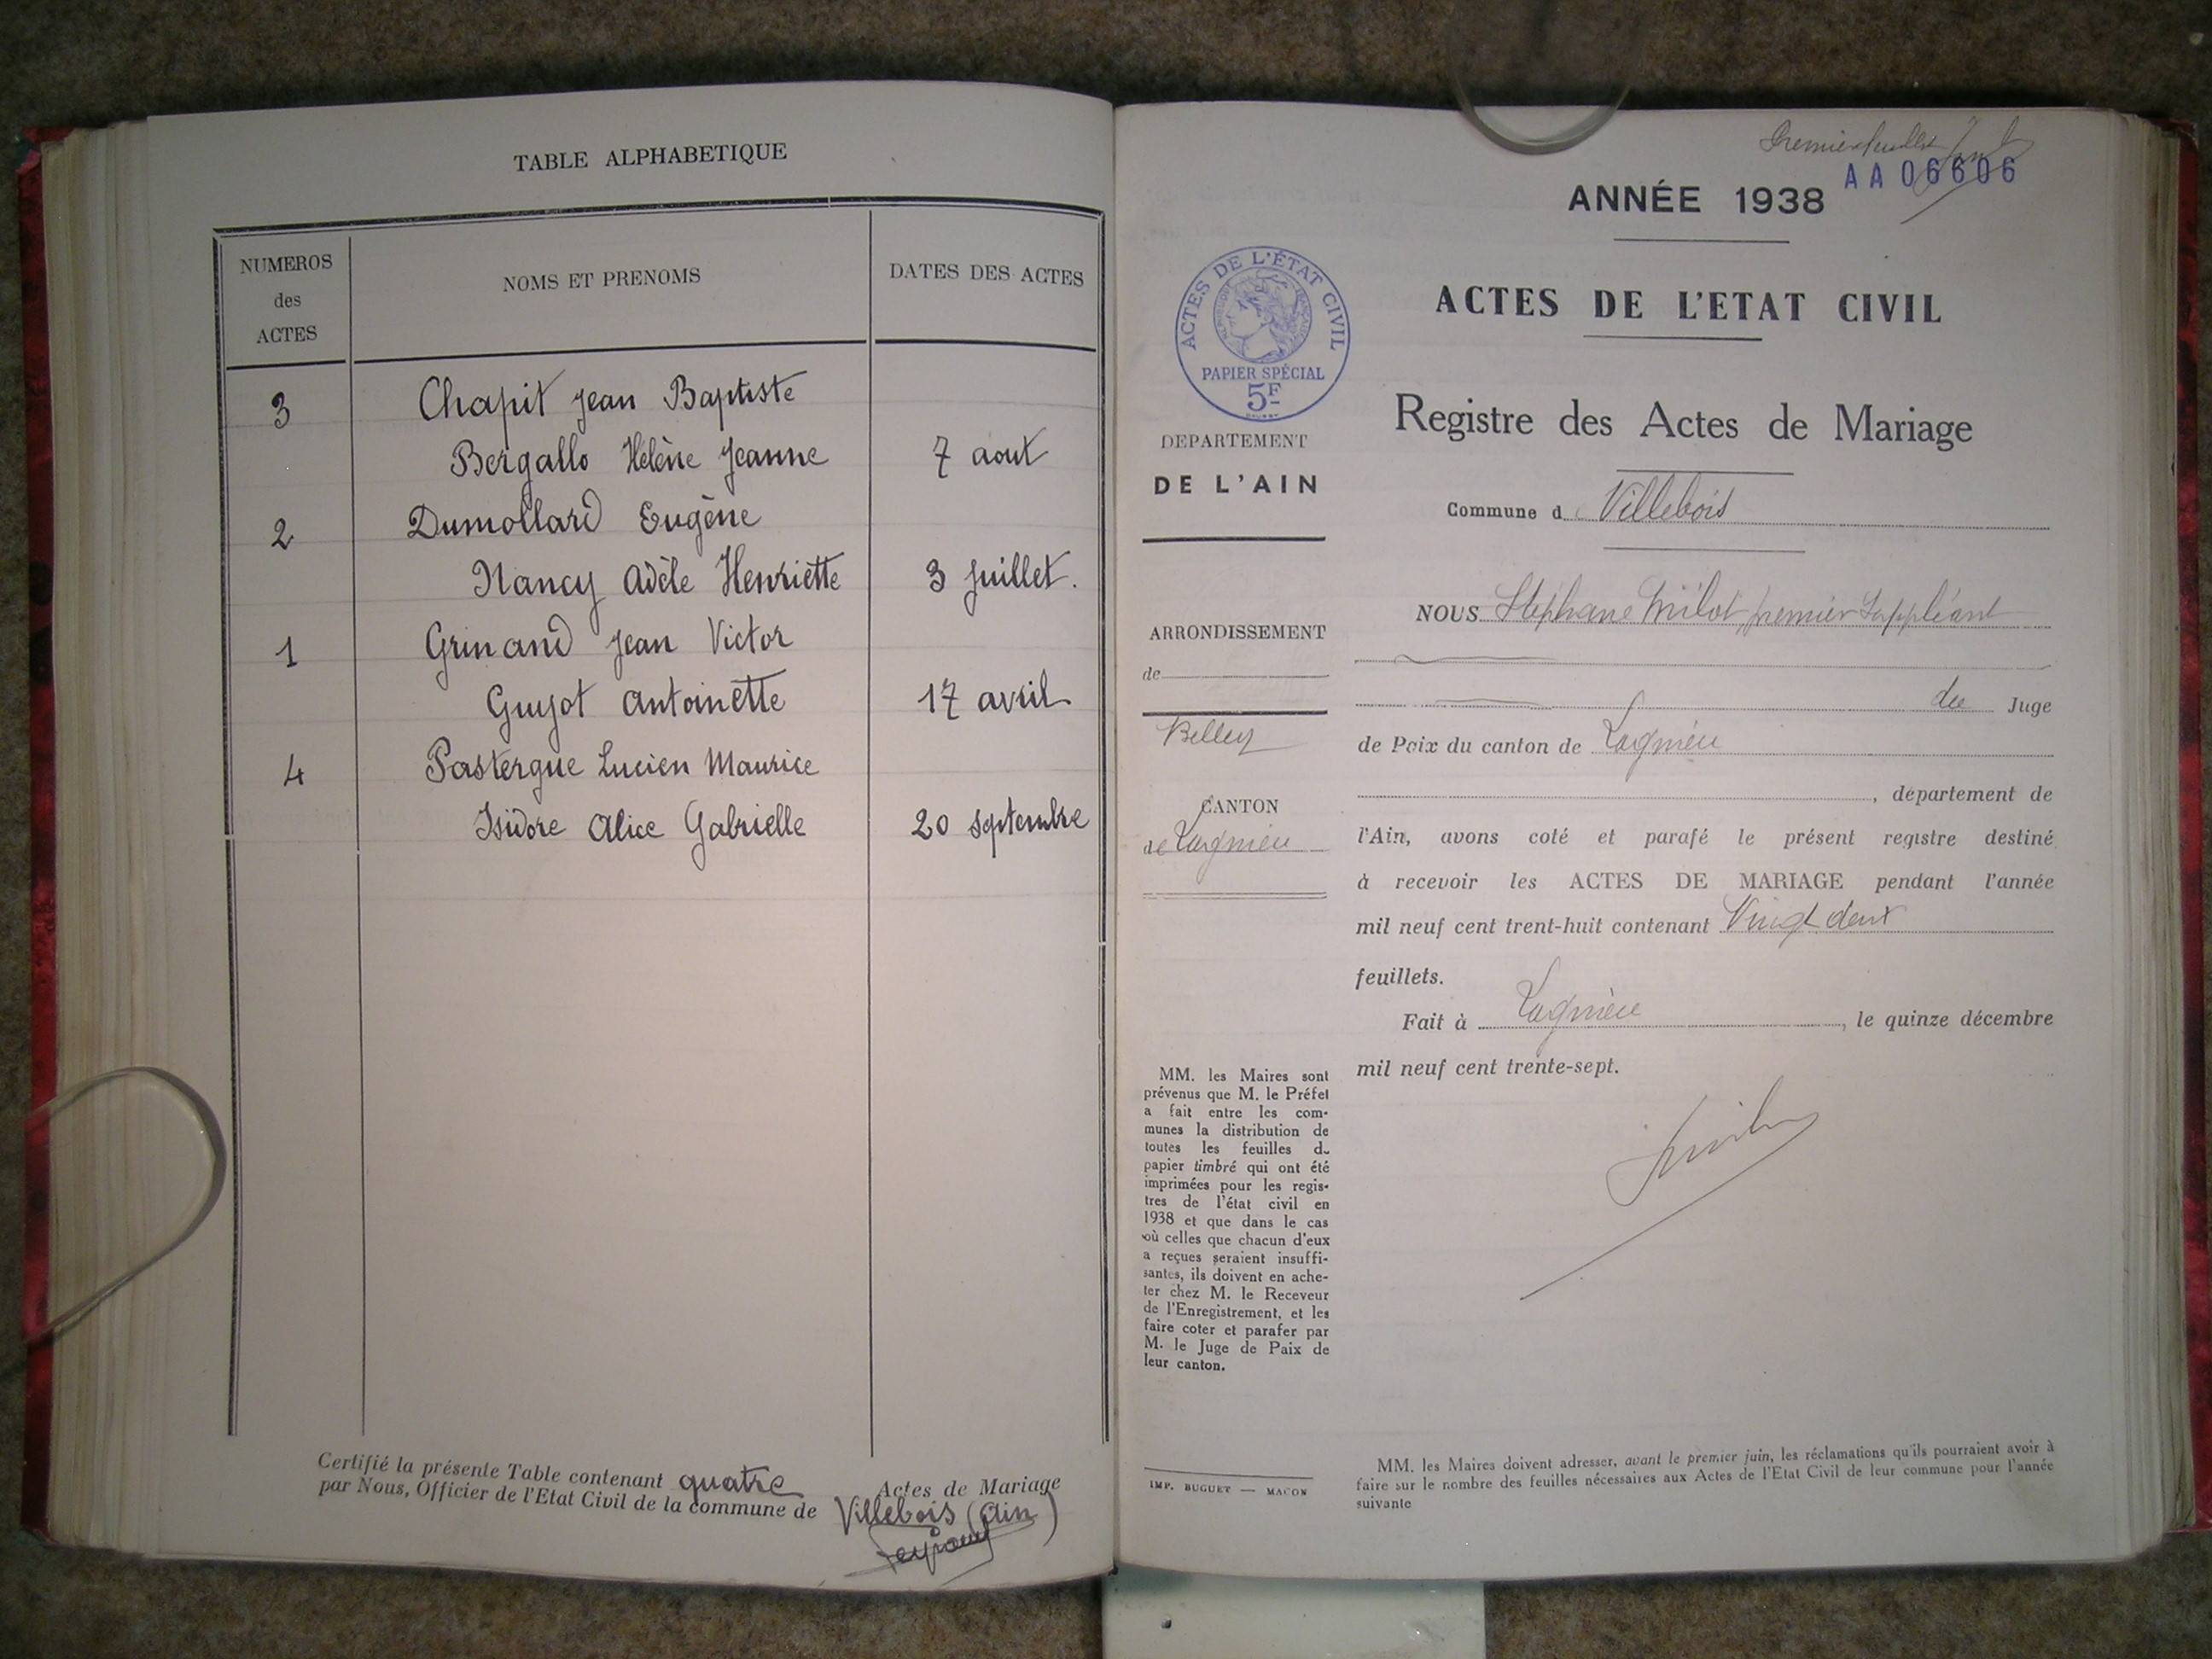 TABLE ALPHABETIQUE
NUMEROS
des
ACTES
NOMS ET PRENOMS
DATES DES ACTES
3 Chapit Jean Baptiste
Bergallo Hélène Jeanne 7 aout
2 Dumollard Eugène
Nancy Adèle Henriette 3 juillet.
1 Grinand Jean Victor
Guyot Antoinette 17 avril
4 Pastergue Lucien Maurice
Isidore Alice Gabrielle 20 septembre
Certifié la présente Table contenant quatre Actes de Mariage
par Nous, Officier de l'Etat Civil de la commune de Villebois (Ain)
AA 06606
ANNÉE 1938
ACTES DE L'ETAT CIVIL
Registre des Actes de Mariage
Commune d Villebois
ACTES DE L'ÉTAT CIVIL
PAPIER SPÉCIAL
5F
DEPARTEMENT
DE L'AIN
ARRONDISSEMENT
de
Belley
CANTON
de Lagnieu
MM. les Maires sont
prévenus que M. le Préfet
a fait entre les com-
munes la distribution de
toutes les feuilles d
papier timbré qui ont été
imprimées pour les regis-
tres de l'état civil en
1938 et que dans le cas
où celles que chacun d'eux
a reçues seraient insuffi-
santes, ils doivent en ache-
ter chez M. le Receveur
de l'Enregistrement, et les
faire coter et parafer par
M. le Juge de Paix de
leur canton.
IMP. BUGUET — MACON
NOUS Stéphane Milot, premier Suppléant
du Juge
de Paix du canton de Lagnieu
, département de
l'Ain, avons coté et parafé le présent registre destiné
à recevoir les ACTES DE MARIAGE pendant l'année
mil neuf cent trent-huit contenant Vingt deux
feuillets.
Fait à Lagnieu, le quinze décembre
mil neuf cent trente-sept.
MM. les Maires doivent adresser, avant le premier juin, les réclamations qu'ils pourraient avoir à
faire sur le nombre des feuilles nécessaires aux Actes de l'Etat Civil de leur commune pour l'année
suivante